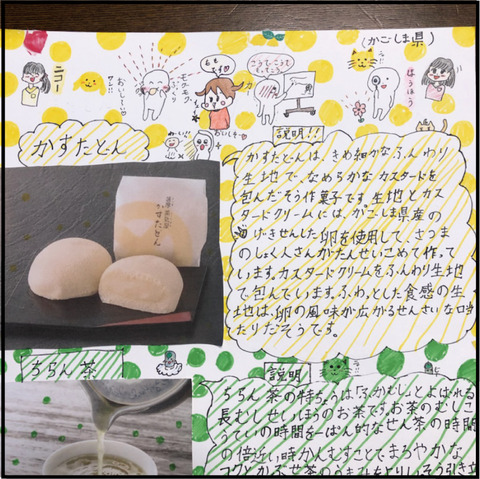 (かごしま県)
ニコー
おいしい
モグモグ
もぐもぐ
こうで、こうで
そって、こう
ほうほう
おいしー
かすたどん
説明!!
かすたどんは、きめ細かなふんわり
生地で、なめらかなカスタードを
包んだそう作菓子です。生地とカス
タードクリームには、かごしま県産の
げんきせんした卵を使用して、さつま
のしょく人さんがたんせいこめて作って
います。カスタードクリームをふんわり生地
で包んでいます。ふわっとした食感の生
地は、卵の風味が広がるせんさいな口当
たりだそうです。
薩摩蒸気屋
かすたどん
ちらん茶
説明
ちらん茶の特ちょうは「ふかむし」とよばれる
長むしせいほうのお茶です。お茶のむしこ
うていの時間を一ぱん的なせん茶の時間
の倍近い時かんむすことでまろやかな
コクとかぶせ茶のうまみをよりいっそう引き立